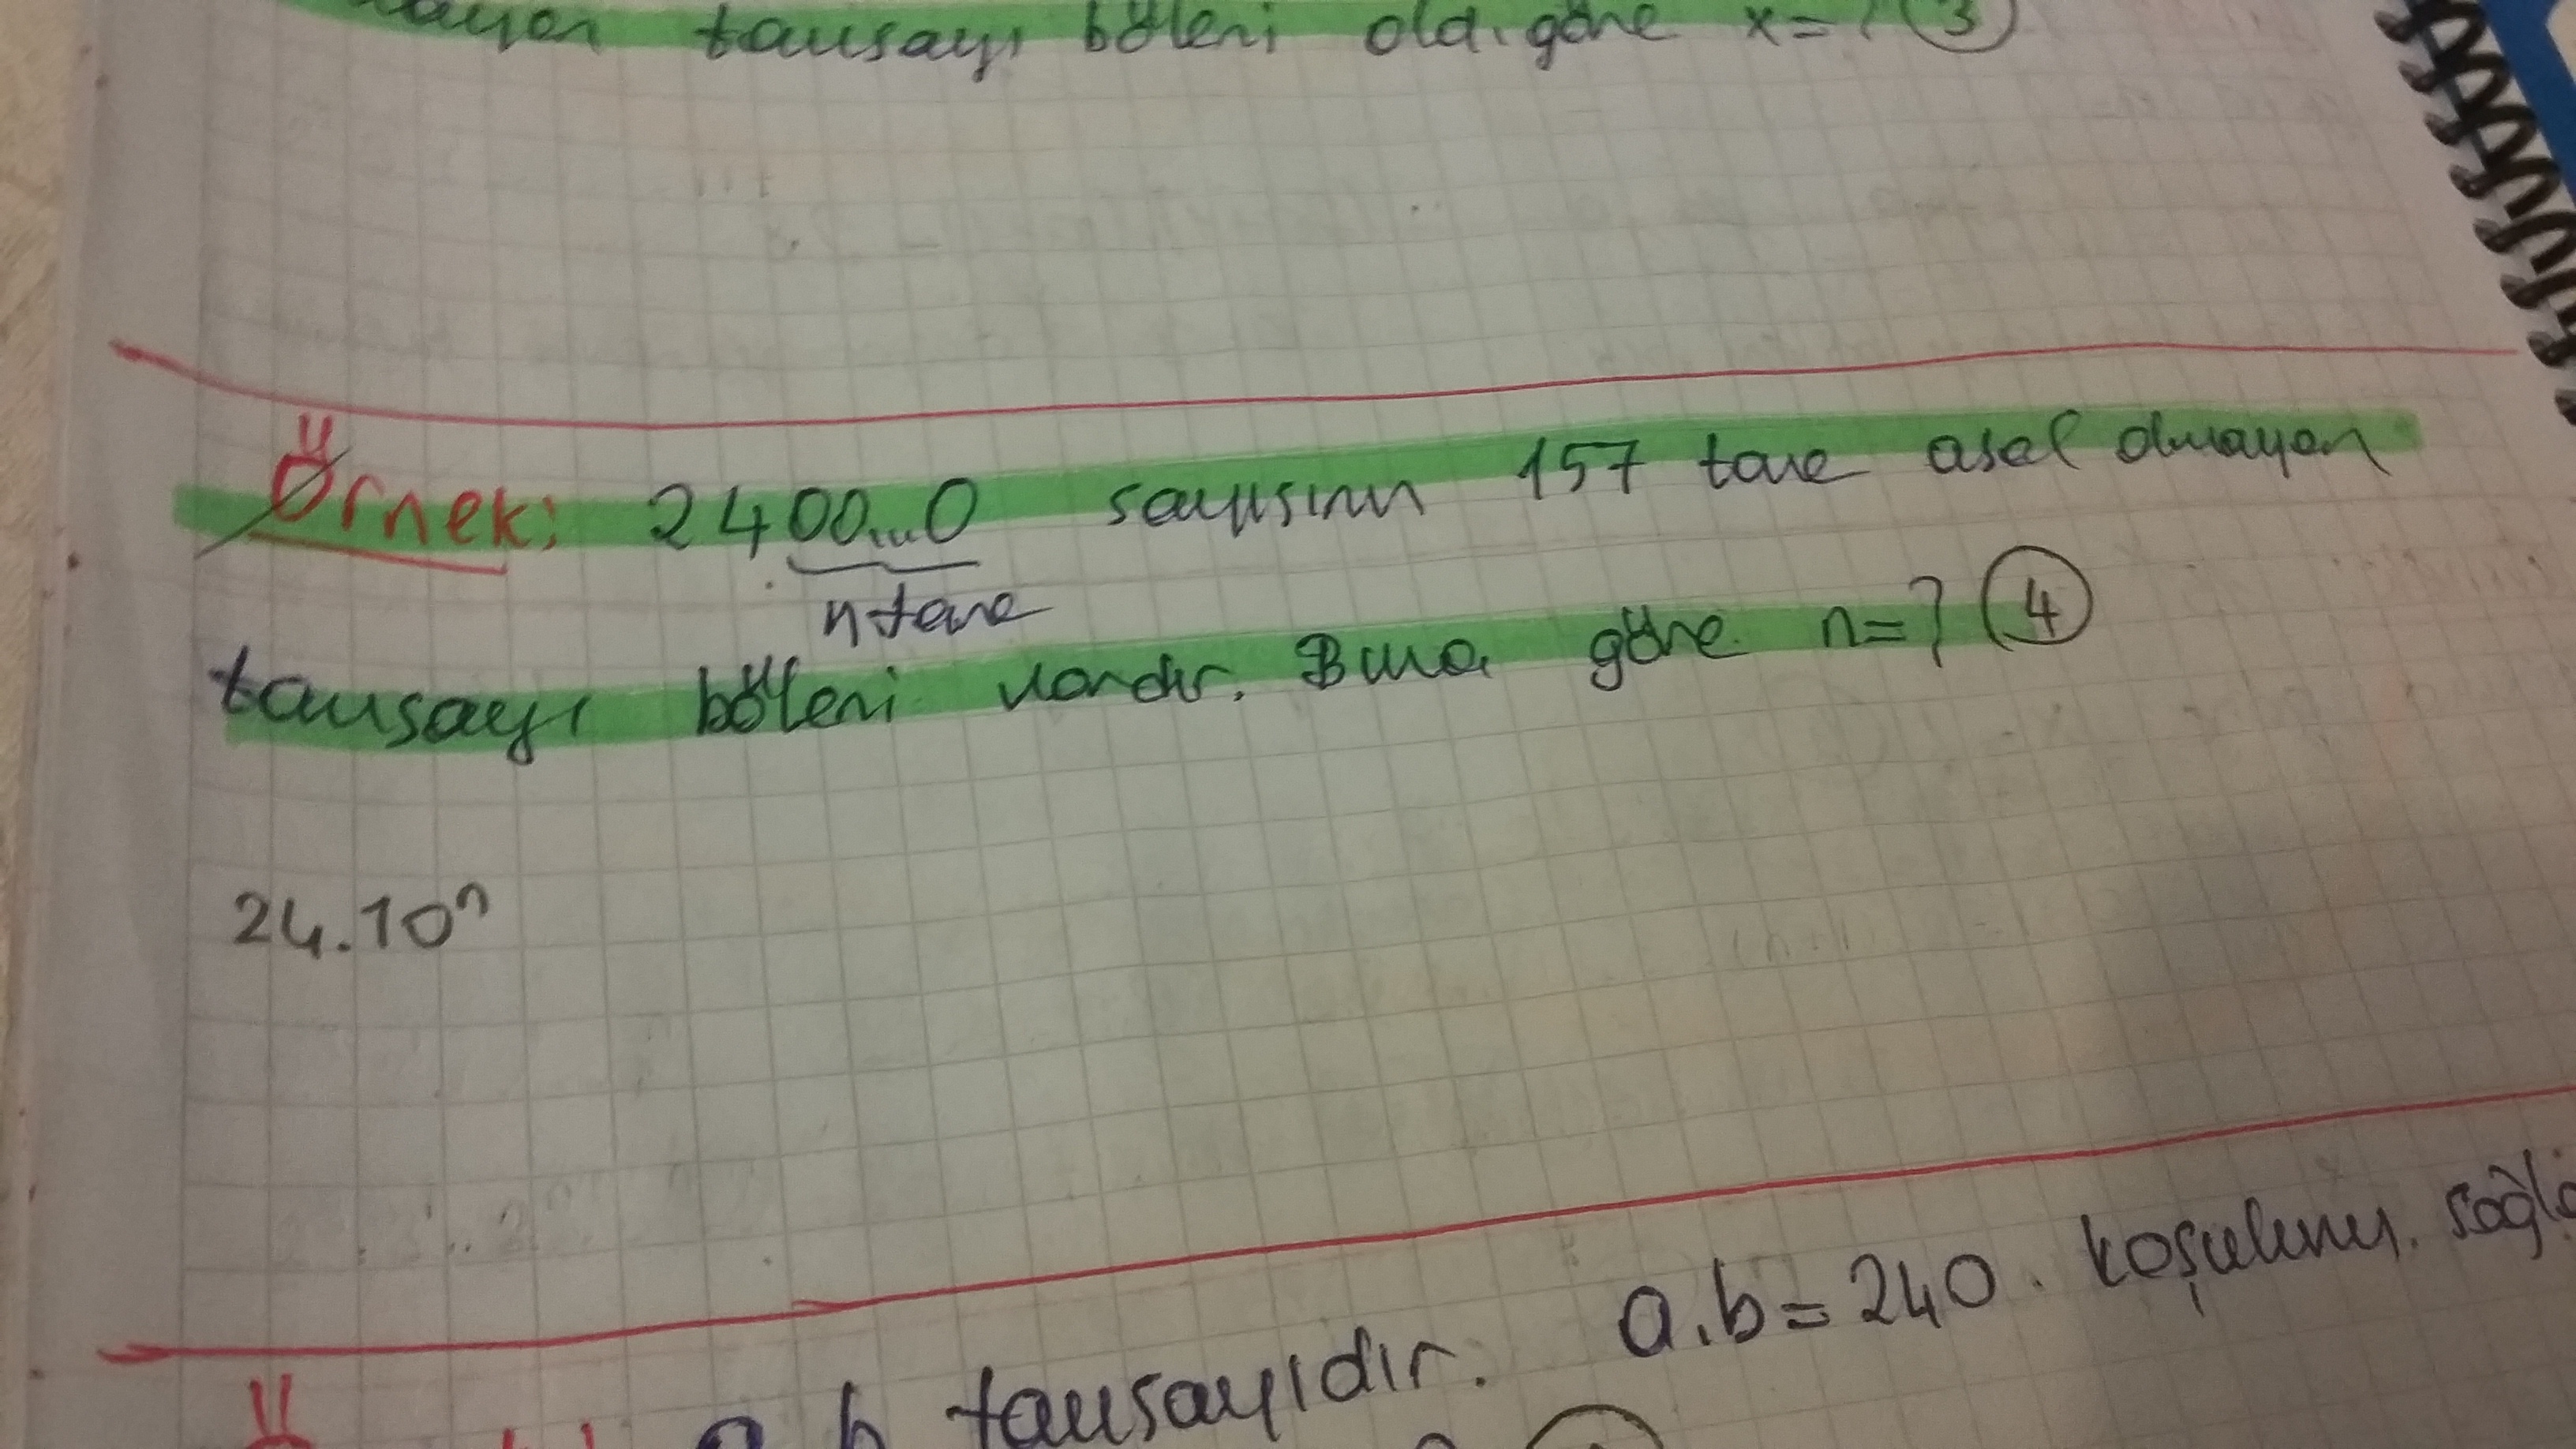 tamsayı böleni old. göre x=? 3
Örnek: 2400...0 sayısının 157 tane asal olmayan
n tane
tamsayı böleni vardır. Buna göre n=? 4
24.10ⁿ
a.b=240 koşulunu
a b tamsayıdır.